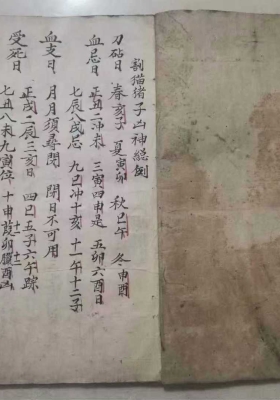 割猫猪子凶神總例
刀砧日 春亥子 夏寅卯 秋巳午 冬申酉
血忌日 正丑二冲未 三寅四申是 五卯六酉日
七辰八戌忌 九巳冲十亥 十一午十二子
血支日 月月須尋閉 閉日不可用
受死日 正戌二辰三亥日 四巳五子六午踪
七丑八未九寅位 十申十一卯臘酉凶